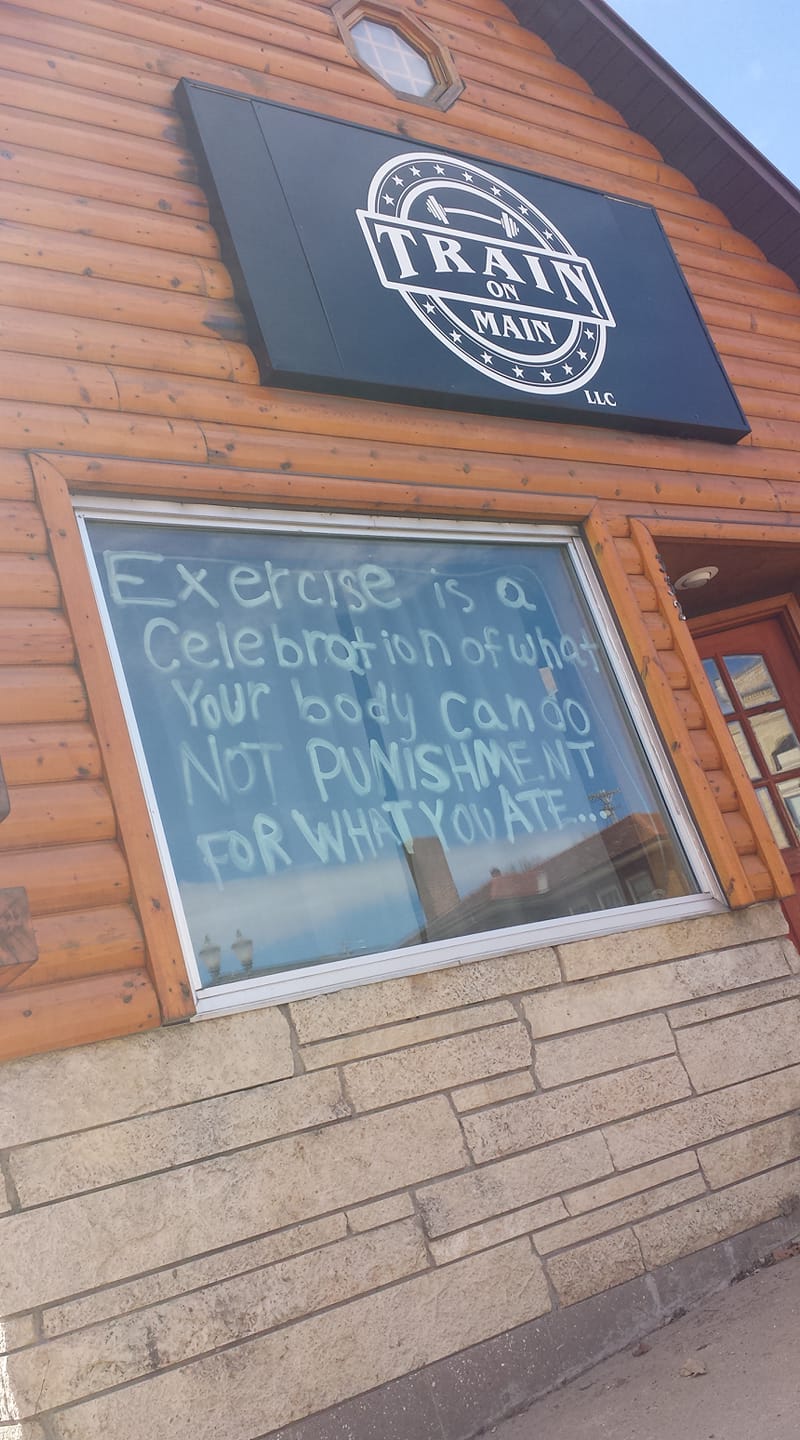 TRAIN
ON
MAIN
LLC
Exercise is a
Celebration of what
Your body can do
NOT PUNISHMENT
FOR WHAT YOU ATE...